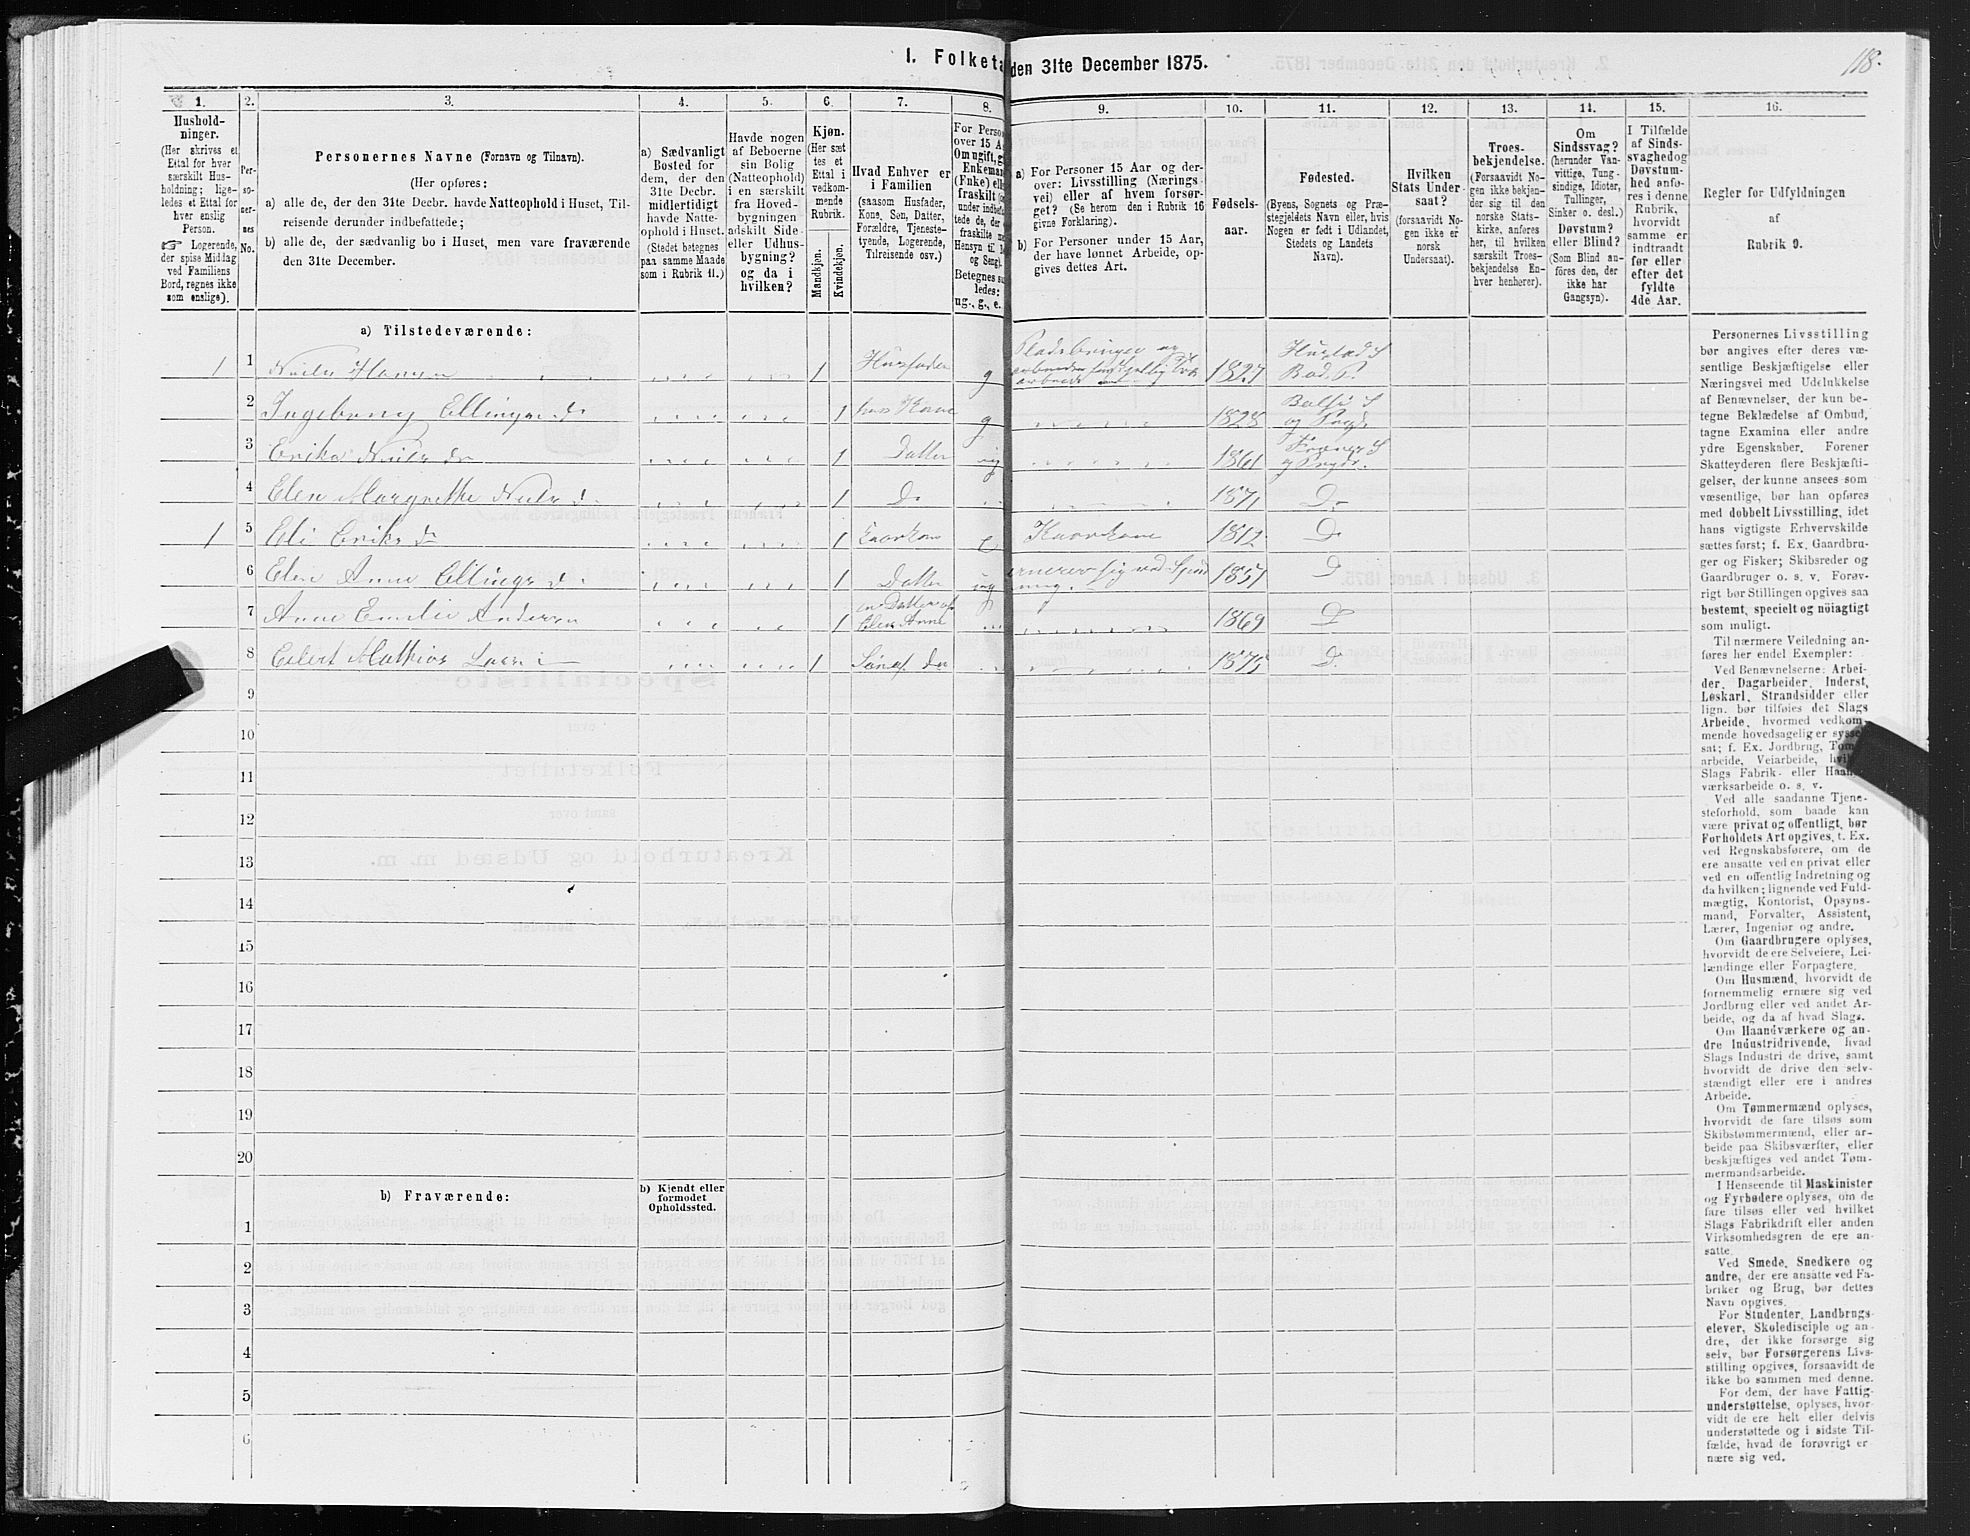 I. Folketa
den 31te December 1875.
118.
1.
2.
3.
4.
5.
6.
7.
8.
9.
10.
11.
12.
13.
14.
15.
16.
Hushold-
ninger.
(Her skrives et
Ettal for hver
særskilt Hus-
holdning; lige-
ledes et Ettal for
hver enslig
Person.
☞ Logerende,
der spise Middag
ved Familiens
Bord, regnes ikke
som enslige).
Per-
so-
ner-
nes
No.
Personernes Navne (Fornavn og Tilnavn).
(Her opføres:
a) alle de, der den 31te Decbr. havde Natteophold i Huset, Til-
reisende derunder indbefattede;
b) alle de, der sædvanlig bo i Huset, men vare fraværende
den 31te December.
a) Sædvanligt
Bosted for
dem, der den
31te Decbr.
midlertidigt
havde Natte-
ophold i Huset.
(Stedet betegnes
paa samme Maade
som i Rubrik 11.)
Havde nogen
af Beboerne
sin Bolig
(Natteophold)
i en særskilt
fra Hoved-
bygningen
adskilt Side-
eller Udhus-
bygning?
og da i
hvilken?
Kjøn.
(Her sæt
tes et
Ettal i
vedkom-
mende
Rubrik.
Mandkjøn.
Kvindekjøn.
Hvad Enhver er
i Familien
(saasom Husfader,
Kone, Søn, Datter,
Forældre, Tjeneste-
tyende, Logerende,
Tilreisende osv.)
For Perso
over 15 A
Om ugift, g
Enkeman
(Fnke) ell
fraskilt (
under indbef
tede de, de
fraskilte
Hensyn til
og Seng).
Betegnes s
ledes:
ug., g., e.
a) For Personer 15 Aar og der-
over: Livsstilling (Nærings-
vei) eller af hvem forsør-
get? (Se herom den i Rubrik 16
givne Forklaring).
b) For Personer under 15 Aar,
der have lønnet Arbeide, op-
gives dettes Art.
Fødsels-
aar.
Fødested.
(Byens, Sognets og Præ-
stegjeldets Navn eller, hvis
Nogen er født i Udlandet,
Stedets og Landets
Navn).
Hvilken
Stats Under-
saat?
(forsaavidt No-
gen ikke er
norsk
Undersaat).
Troes-
bekjendelse.
(Forsaavidt No-
gen ikke bekjen-
der sig til den
norske Stats-
kirke, anføres
her, til hvilken
særskilt Troes-
bekjendelse En-
hver henhører).
Om
Sindssvag?
(herunder Van-
vittige, Tung-
sindige, Idioter,
Tullinger,
Sinker o. desl.)
Døvstum?
eller Blind?
(Som Blind an-
føres den, der
ikke har
Gangsyn).
I Tilfælde
af Sinds-
svaghedog
Døvstum-
hed anfø-
res i denne
Rubrik,
hvorvidt
samme er
indtraadt
før eller
efter det
fyldte
4de Aar.
Regler for Udfyldningen
af
Rubrik 9.
a) Tilstedeværende:
1 1 Niels Hansen 1 Husfader g Pladsbruger og 1827 Hustad S
Bod P.
2 Ingeborg Ellingsdr 1 hans Kone g 1828 Bolsø S
og Prgd.
3 Erika Nielsdr 1 Datter ug 1861 Frænes S
og Prgd.
4 Elen Margrethe Nielsdr 1 Do 1871 Do
1 5 Eli Eriksdr 1 Kaarkone e Kaarkone 1812 D
6 Elen Anne Ellingsdr 1 Datter ug ernærer sig ved Spind
ing. 1851 D
7 Anne Emilie Andersen 1 en Datter af
Elen Anne 1869 D
8 Eilert Mathias Larsen 1 Søn af do 1875 D.
9
10
11
12
13
14
15
16
17
18
19
20
b) Fraværende:
b) Kjendt eller
formodet
Opholdssted.
1
2
3
4
5
6
Personernes Livsstilling
bør angives efter deres væ-
sentlige Beskjæftigelse eller
Næringsvei med Udelukkelse
af Benævnelser, der kun be-
tegne Beklædelse af Ombud,
tagne Examina eller andre
ydre Egenskaber. Forener
Skatteyderen flere Beskjæfti-
gelser, der kunne ansees som
væsentlige, bør han opføres
med dobbelt Livsstilling, idet
hans vigtigste Erhvervskilde
sættes først; f. Ex. Gaardbru-
ger og Fisker; Skibsreder og
Gaardbruger o. s. v. Forøv-
rigt bør Stillingen opgives saa
bestemt, specielt og nöiagtigt
som muligt.
Til nærmere Veiledning an-
føres her endel Exempler:
Ved Benævnelserne: Arbei-
der, Dagarbeider, Inderst,
Løskarl, Strandsidder eller
lign. bør tilføies det Slags
Arbeide, hvormed vedkom-
mende hovedsagelig er syssel
sat; f. Ex. Jordbrug, Tom
arbeide, Veiarbeide, hvi
Slags Fabrik- eller Haan
værksarbeide o. s. v.
Ved alle saadanne Tjene-
steforhold, som baade kan
være privat og offentligt, bør
Forholdets Art opgives, t. Ex.
ved Regnskabsførere, om de
ere ansatte ved en privat eller
ved en offentlig Indretning og
da hvilken; lignende ved Fuld-
mægtig, Kontorist, Opsyns-
mand, Forvalter, Assistent,
Lærer, Ingeniør og andre.
Om Gaardbrugere oplyses,
hvorvidt de ere Selveiere, Lei-
lændinge eller Forpagtere.
Om Husmænd, hvorvidt de
fornemmelig ernære sig ved
Jordbrug eller ved andet Ar-
beide, og da af hvad Slags.
Om Haandværkere og an-
dre Industridrivende, hvad
Slags Industri de drive, samt
hvorvidt de drive den selv-
stændigt eller ere i andres
Arbeide.
Om Tømmermænd oplyses,
hvorvidt de fare tilsøs som
Skibstømmermænd, eller ar-
beide paa Skibsværfter, eller
beskjæftiges ved andet Tøm-
mermandsarbeide.
I Henseende til Maskinister
og Fyrbødere oplyses, om de
fare tilsøs eller ved hvilket
Slags Fabrikdrift eller anden
Virksomhedsgren de ere an-
satte.
Ved Smede, Snedkere og
andre, der ere ansatte ved Fa-
briker og Brug, bør dettes
Navn opgives.
For Studenter, Landbrugs-
elever, Skoledisciple og an-
dre, der ikke forsørge sig
selv, bør Forsørgerens Livs-
stilling opgives, forsaavidt de
ikke bo sammen med denne.
For dem, der have Fattig-
understøttelse, oplyses, hvor-
vidt de ere helt eller delvis
understøttede og i sidste Til-
fælde, hvad de forøvrigt er
nære sig ved.